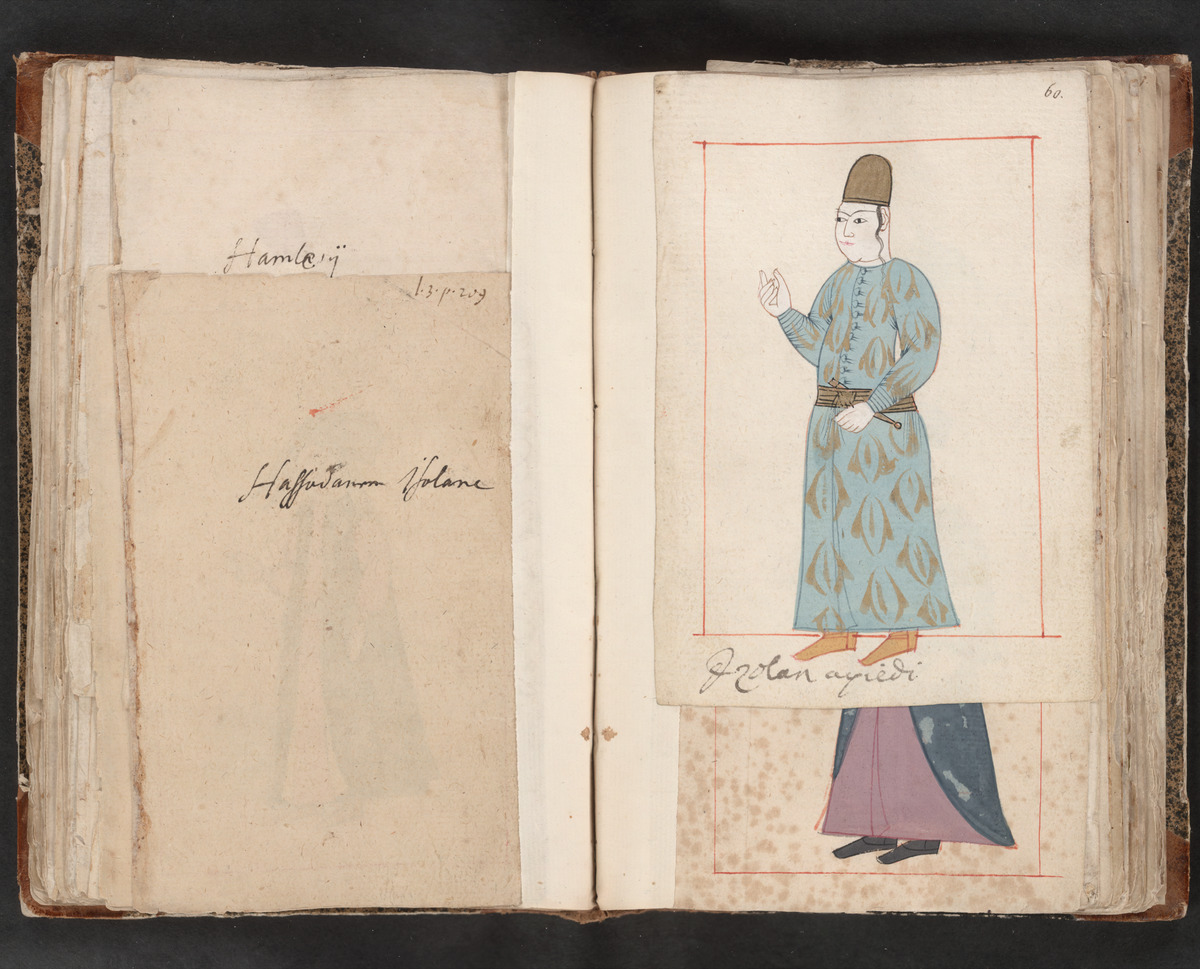 Hamlerÿ
l. 3. p. 209
Hassodanrm Isolane
60.
Izolan apiedi